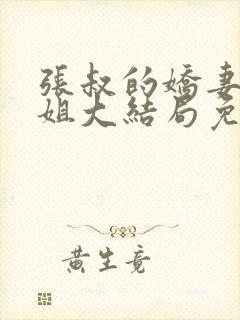 張叔的嬌妻
姐大結局免
黄生竟